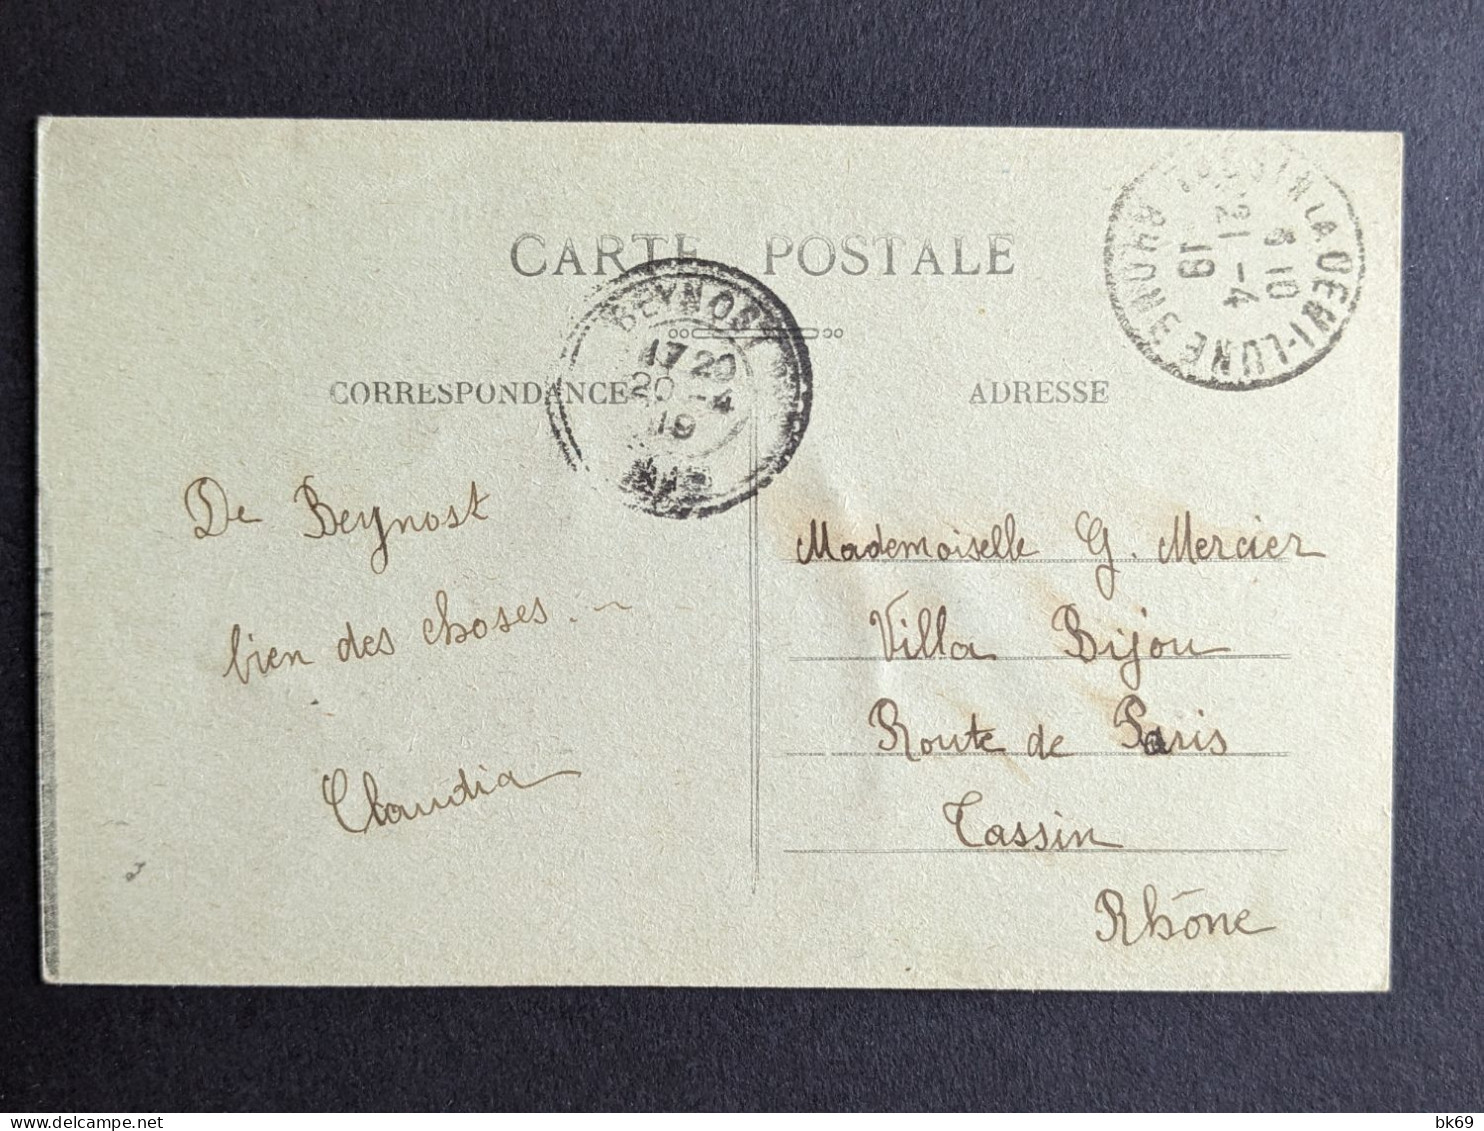 CARTE POSTALE
CORRESPONDANCE
ADRESSE
BEYNOST
17 20
20 -4
19
AIN
TASSIN LA DEMI-LUNE
RHONE
8 10
21 -4
19
De Beynost
bien des choses. ~
Claudia
Mademoiselle G. Mercier
Villa Bijou
Route de Paris
Tassin
Rhône
bk69